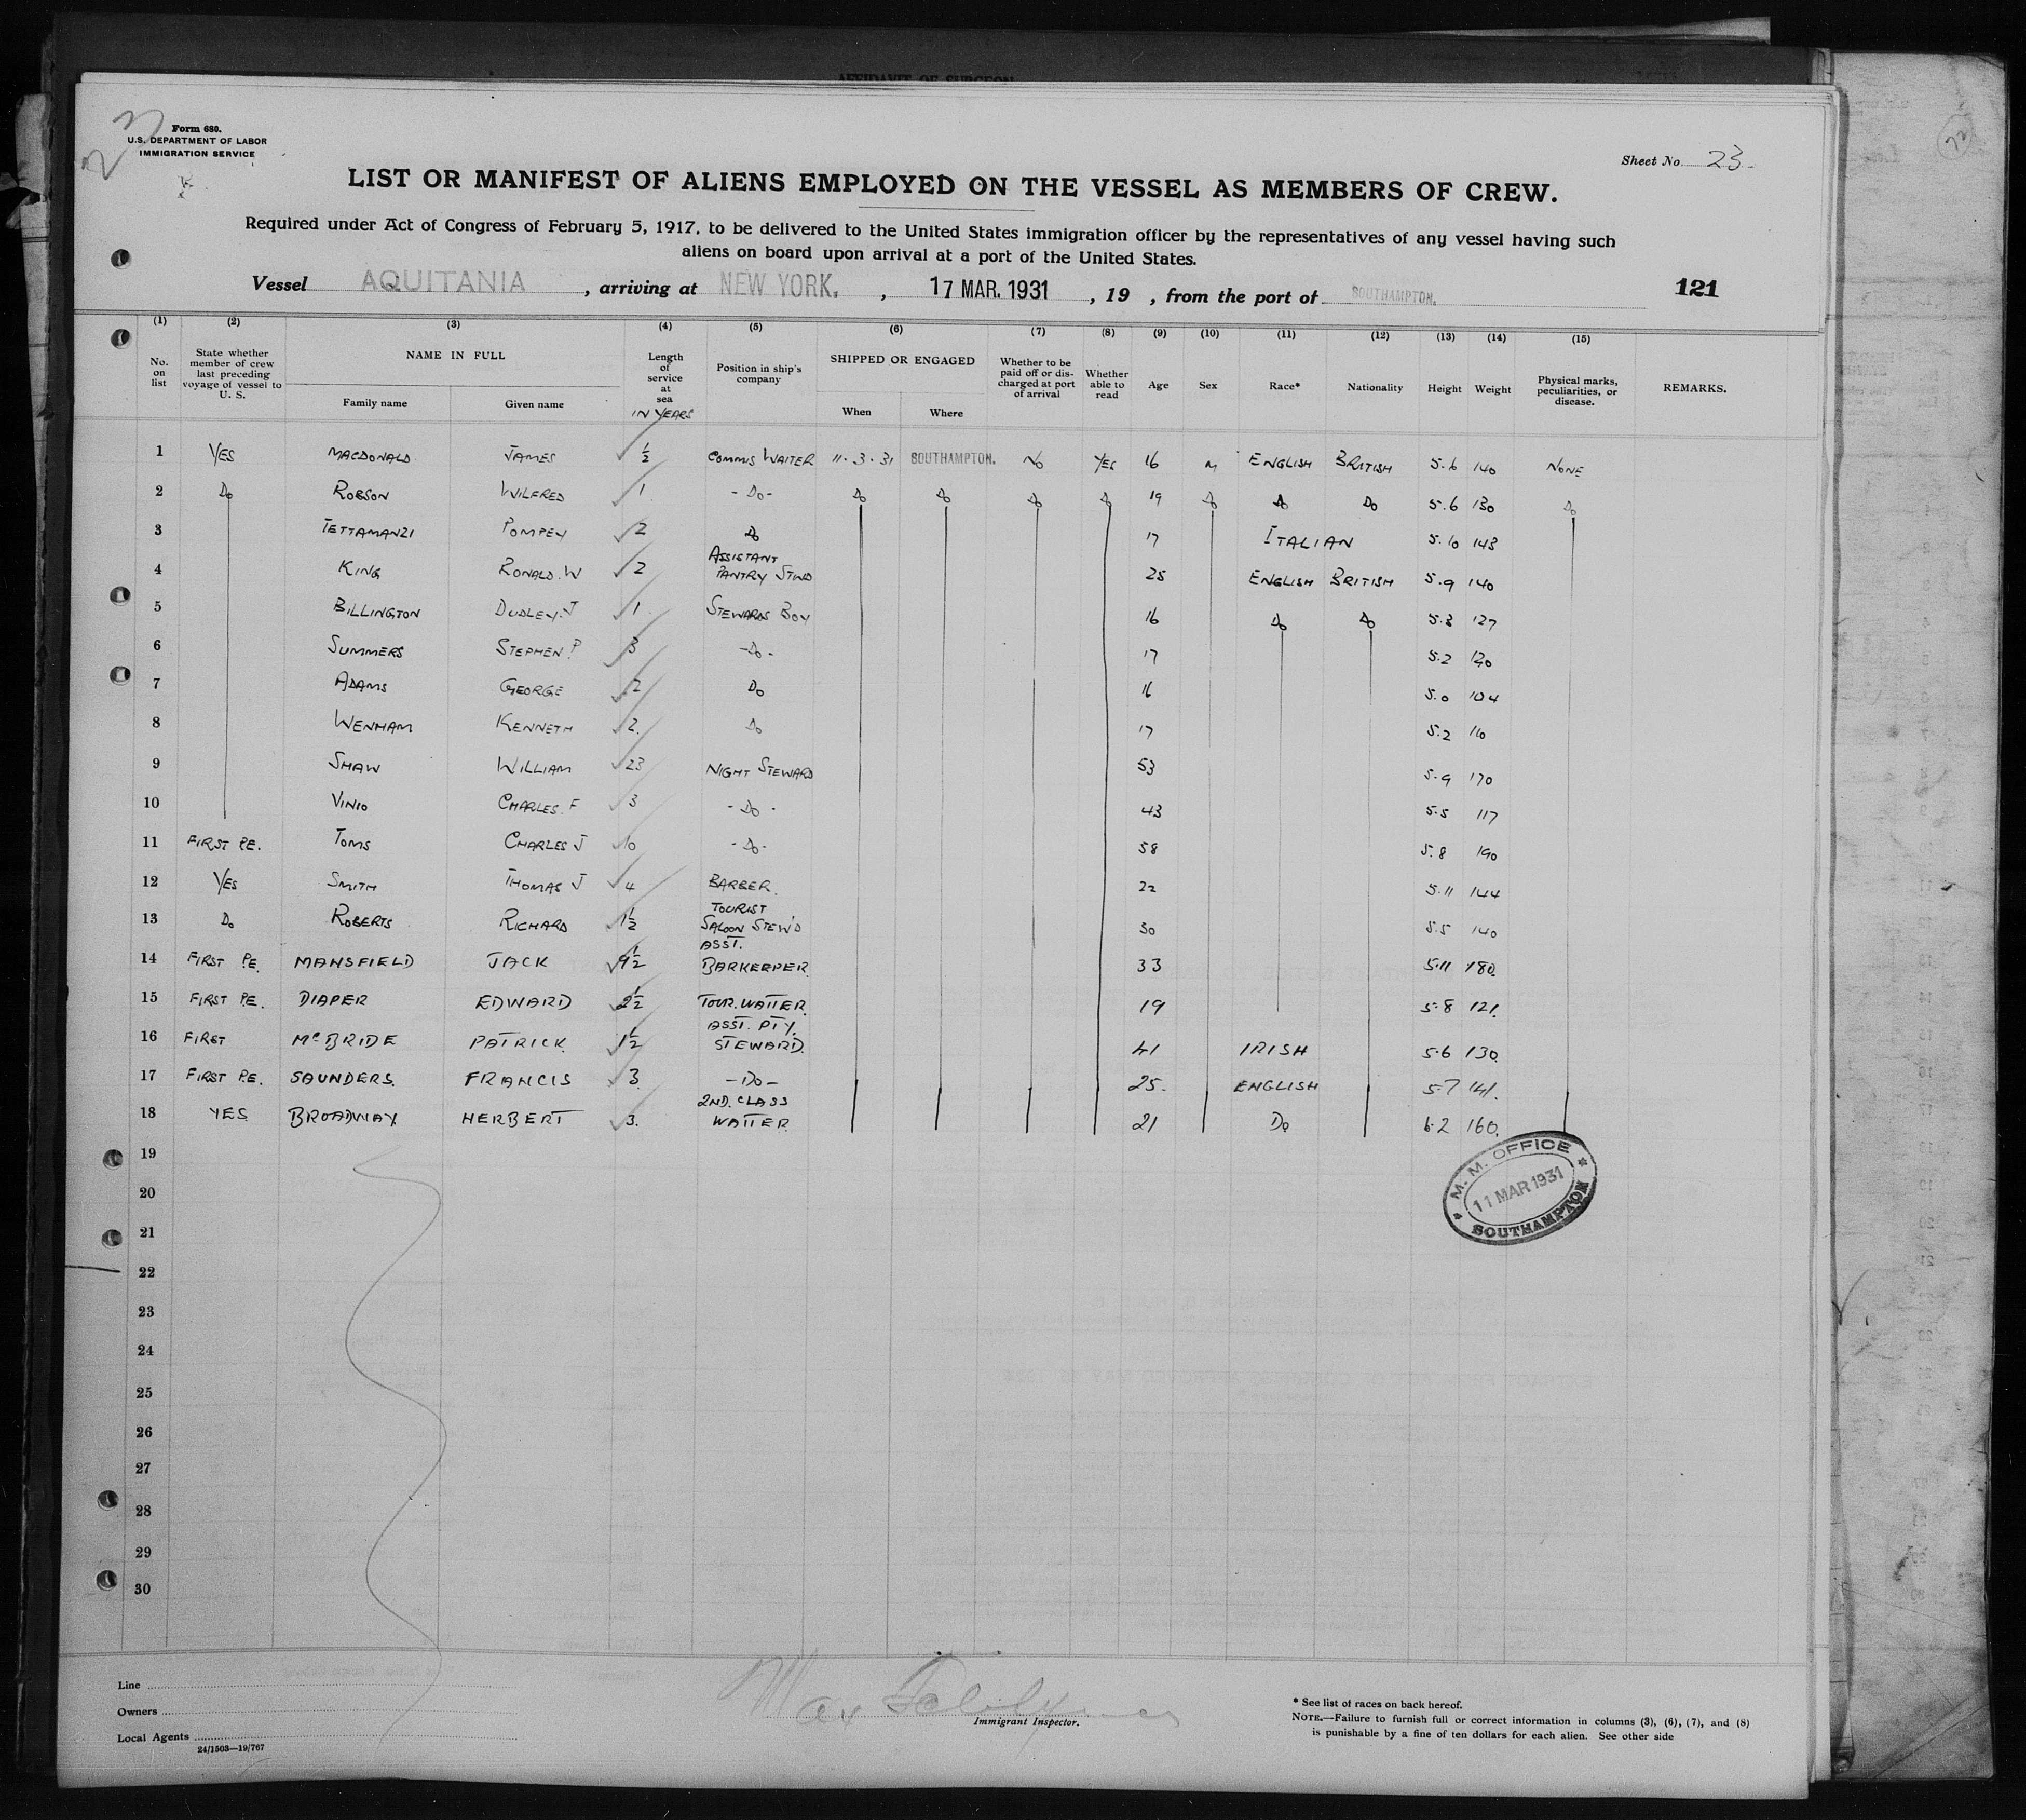 AFFIDAVIT OF SURGEON
23
Form 680.
U.S. DEPARTMENT OF LABOR
IMMIGRATION SERVICE
Sheet No. 23.
LIST OR MANIFEST OF ALIENS EMPLOYED ON THE VESSEL AS MEMBERS OF CREW.
Required under Act of Congress of February 5, 1917, to be delivered to the United States immigration officer by the representatives of any vessel having such
aliens on board upon arrival at a port of the United States.
Vessel AQUITANIA, arriving at NEW YORK., 17 MAR. 1931, 19 , from the port of SOUTHAMPTON. 121
(1) (2) (3) (4) (5) (6) (7) (8) (9) (10) (11) (12) (13) (14) (15)
No. on list State whether member of crew last preceding voyage of vessel to U. S. NAME IN FULL Family name Given name Length of service at sea IN YEARS Position in ship's company SHIPPED OR ENGAGED When Where Whether to be paid off or discharged at port of arrival Whether able to read Age Sex Race* Nationality Height Weight Physical marks, peculiarities, or disease. REMARKS.
1 YES MACDONALD JAMES ½ COMMIS WAITER 11.3.31 SOUTHAMPTON. NO YES 16 M ENGLISH BRITISH 5.6 140 NONE
2 Do ROBSON WILFRED 1 -Do- Do Do Do Do 19 Do Do Do 5.6 130 Do
3 TETTAMANZI POMPEY 2 Do 17 ITALIAN 5.10 143
4 KING RONALD.W 2 ASSISTANT PANTRY STWD 25 ENGLISH BRITISH 5.9 140
5 BILLINGTON DUDLEY.J 1 STEWARDS BOY 16 Do Do 5.3 127
6 SUMMERS STEPHEN P 3 -Do- 17 5.2
7 ADAMS GEORGE 2 Do 16 5.0 104
8 WENHAM KENNETH 2. Do 17 5.2 110
9 SHAW WILLIAM 23 NIGHT STEWARD 53 5.9 170
10 VINIO CHARLES.F 3 -Do- 43 5.5 117
11 FIRST P.E. TOMS CHARLES J 10 -Do- 58 5.8 190
12 YES SMITH THOMAS J 4 BARBER. 22 5.11 144
13 Do ROBERTS RICHARD 1½ TOURIST SALOON STEW'D 30 5.5 140
14 FIRST P.E. MANSFIELD JACK 9½ ASST. BARKEEPER. 33 5.11 180.
15 FIRST P.E. DIAPER EDWARD 2½ TOUR. WAITER. 19 5.8 121.
16 FIRST McBRIDE PATRICK. 1½ ASST. PTY. STEWARD. 41 IRISH 5.6 130.
17 FIRST P.E. SAUNDERS. FRANCIS 3 -Do- 25. ENGLISH 5.7 141.
18 YES BROADWAY HERBERT 3. 2ND. CLASS WAITER. 21 Do 6.2 160.
19
M. M. OFFICE
11 MAR 1931
SOUTHAMPTON
20
21
22
23
24
25
26
27
28
29
30
Line
Owners
Local Agents
24/1503—19/767
Immigrant Inspector.
* See list of races on back hereof.
NOTE.—Failure to furnish full or correct information in columns (3), (6), (7), and (8)
is punishable by a fine of ten dollars for each alien. See other side